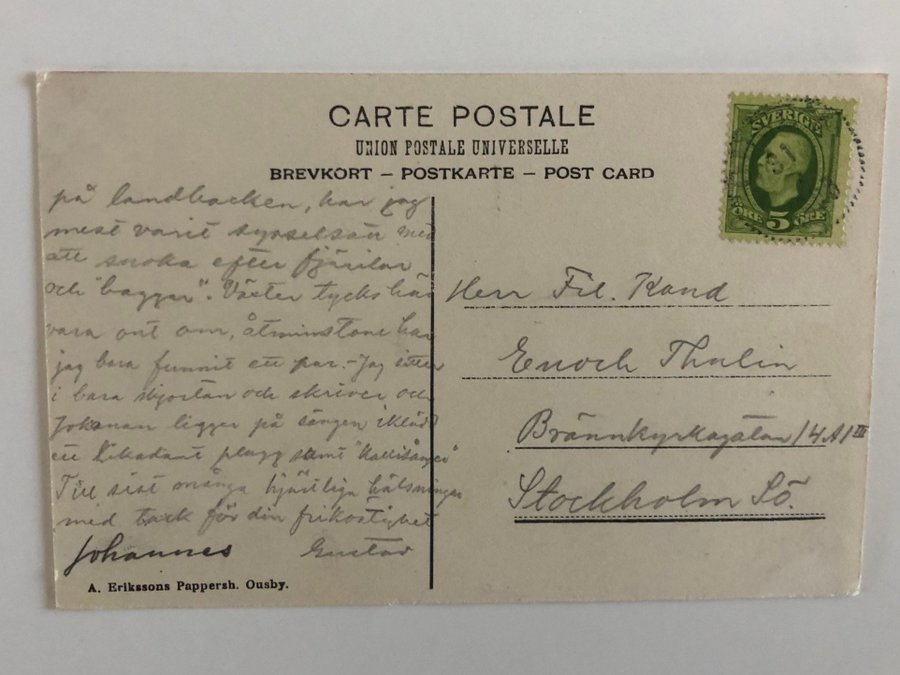 CARTE POSTALE
UNION POSTALE UNIVERSELLE
BREVKORT – POSTKARTE – POST CARD
SVERIGE
ÖRE 5 ÖRE
på landbacken, har jag
mest varit sysselsatt med
att snoka efter fjärilar
och "baggar". Växter tycks här
vara ont om, åtminstone har
jag bara funnit ett par. - Jag sitter
i bara skjortan och skriver och
Johannes ligger på sängen iklädd
ett plagg samt
Till sist många hjärtliga hälsningar
med tack för din frikostighet
Johannes Gustav
A. Erikssons Pappersh. Ousby.
Herr Fil. Kand
Enoch Thulin
Brännkyrkagatan 14 A III
Stockholm Sö.